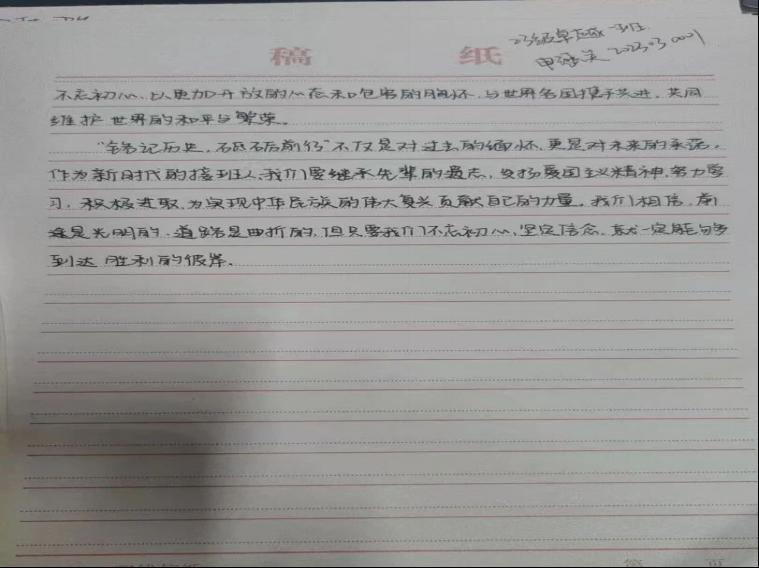 稿 纸
23级卓越一班
2023030001
不忘初心,以更加开放的心态和包容的胸怀,与世界各国携手共进,共同
维护世界的和平与繁荣。
“铭记历史,砥砺前行”不仅是对过去的缅怀,更是对未来的承诺。
作为新时代的接班人,我们要继承先辈的遗志,发扬爱国主义精神,努力学
习,积极进取,为实现中华民族的伟大复兴贡献自己的力量。我们相信,前
途是光明的,道路是曲折的,但只要我们不忘初心,坚定信念,就一定能够
到达胜利的彼岸。